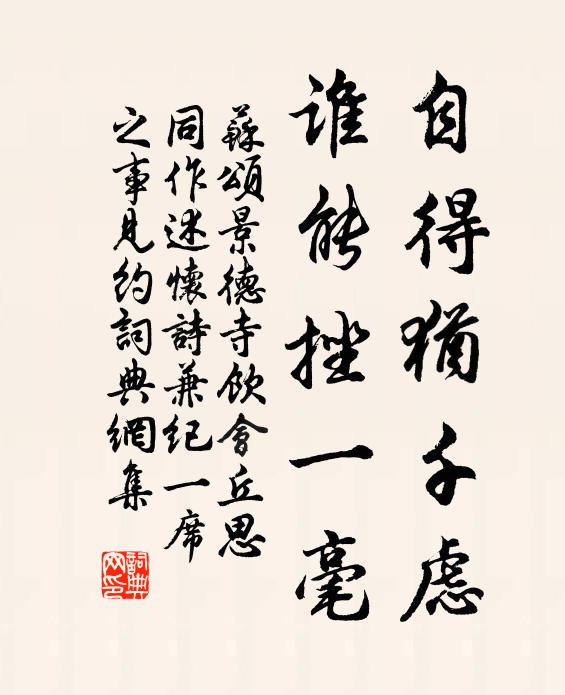 自得猶千慮
誰能挫一毫
蘇頌景德寺飲會丘思
同作述懷詩兼紀一席
之事見約詞典網集
詞典
网印